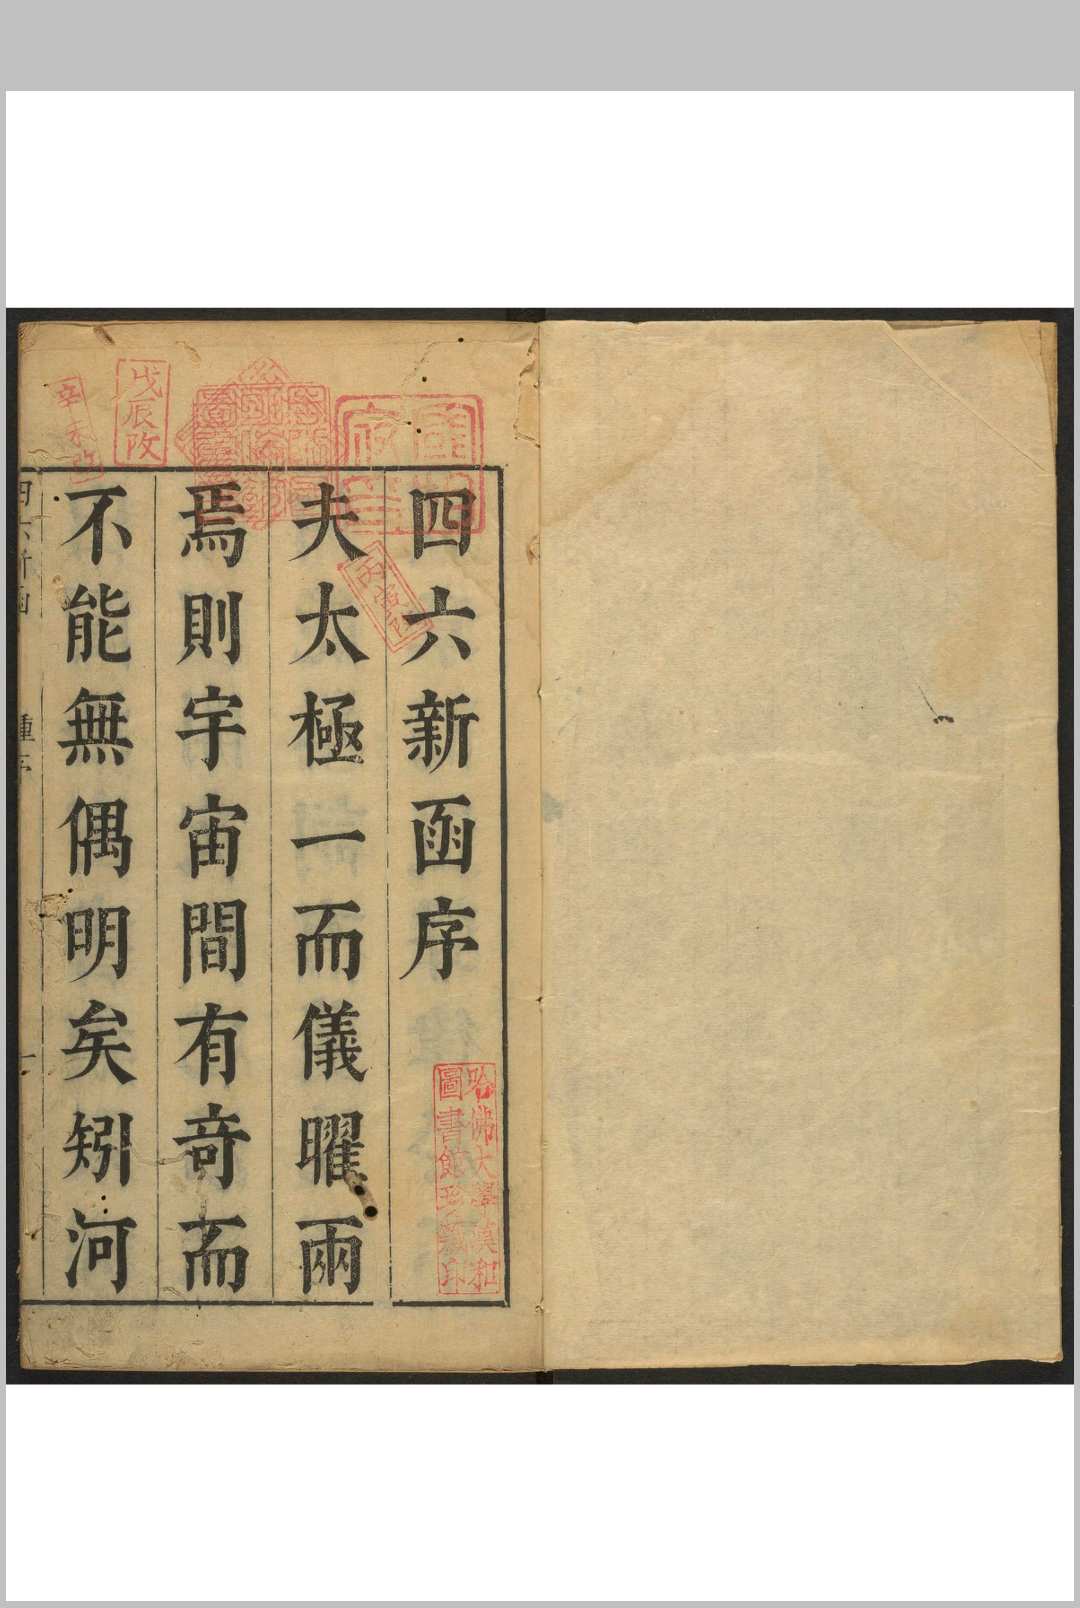 四六新函序
夫太極一而儀曜兩
焉則宇宙間有奇而
不能無偶明矣矧河
四六新函
鍾序
一
戊辰改
辛未改
哈佛大學漢和
圖書館珍藏印